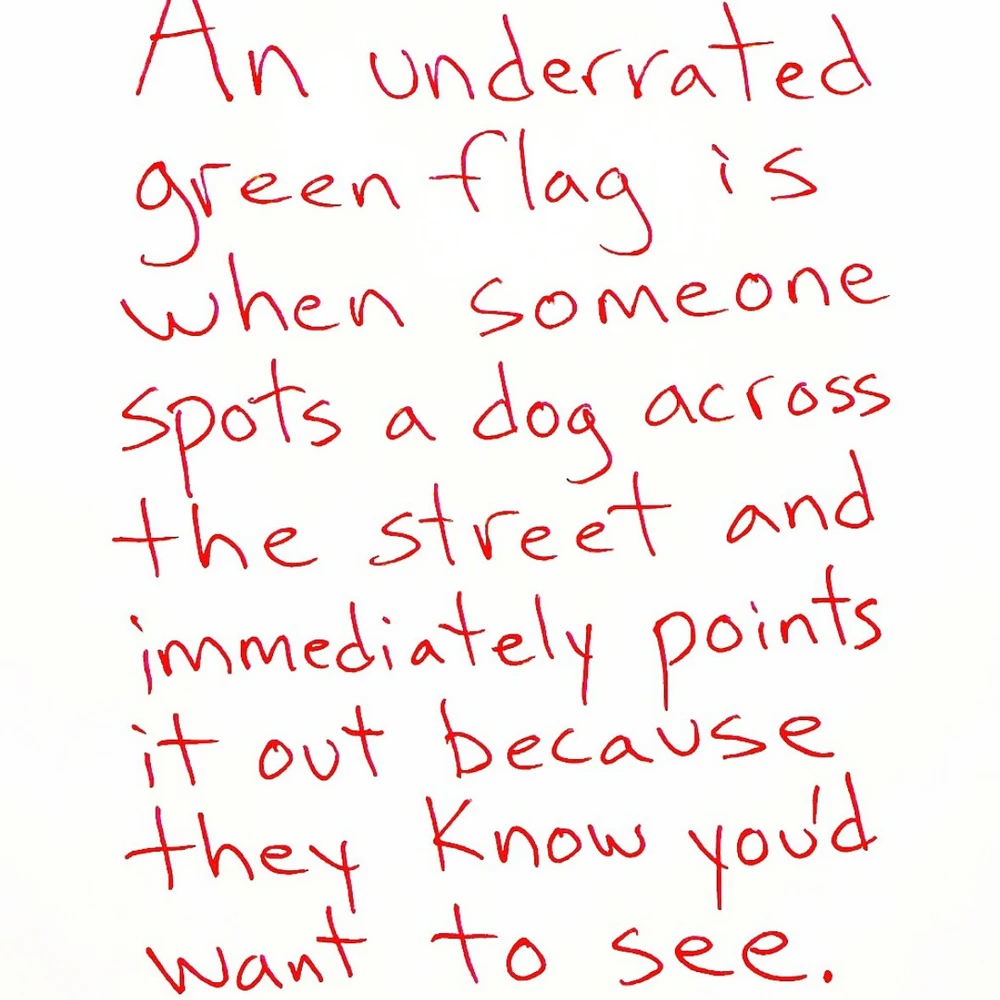 An underrated
green flag is
when someone
spots a dog across
the street and
immediately points
it out because
they know you'd
want to see.